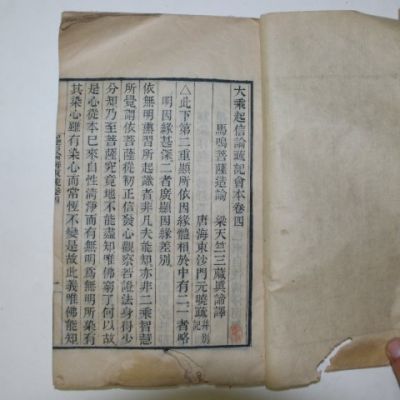 大乘起信論疏記會本卷四
馬鳴菩薩造論 梁天竺三藏眞諦譯
唐海東沙門元曉疏幷別記
△此下第二重顯所依因緣體相於中有二一者略
明因緣甚深二者廣顯因緣差別
依無明熏習所起識者非凡夫能知亦非二乘智慧
所覺謂依菩薩從初正信發心觀察若證法身得少
分知乃至菩薩究竟地不能盡知唯佛窮了何以故
是心從本已來自性淸淨而有無明爲無明所染有
其染心雖有染心而常恒不變是故此義唯佛能知